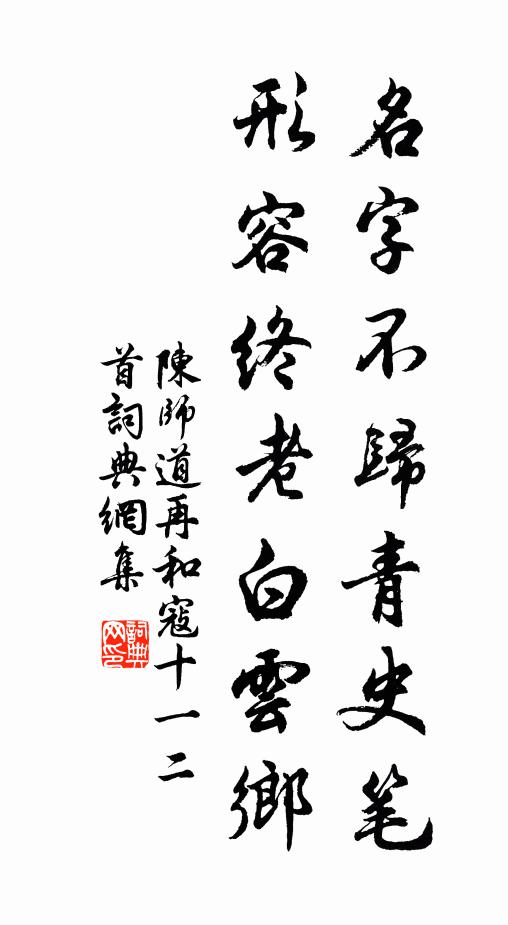 名字不歸青史笔
形容終老白雲鄉
陳師道再和寇十一二
首詞典網集
詞典网印